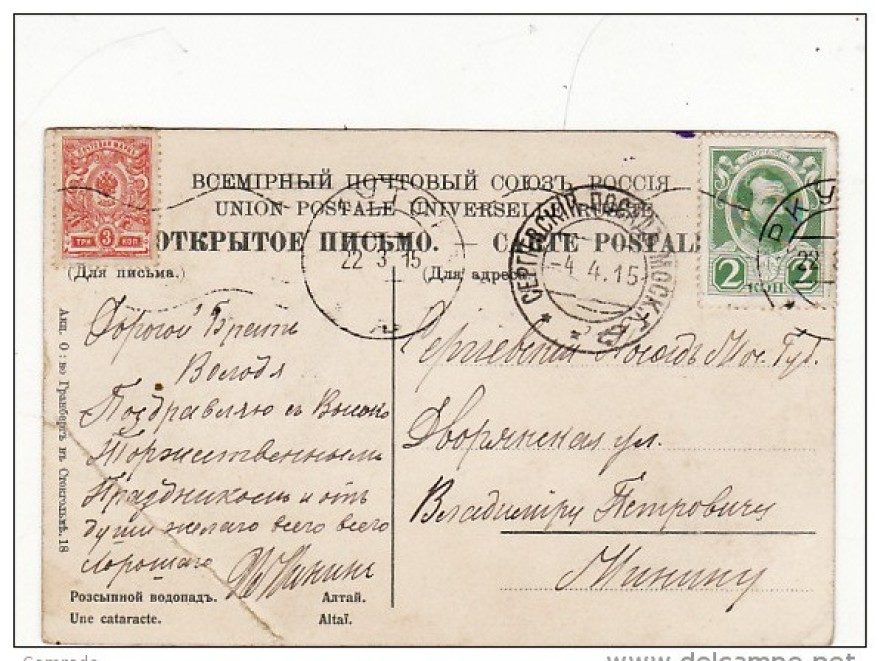 ВСЕМІРНЫЙ ПОЧТОВЫЙ СОЮЗЪ. РОССІЯ.
UNION POSTALE UNIVERSELLE. RUSSIE.
ОТКРЫТОЕ ПИСЬМО. — CARTE POSTALE
(Для письма.)
(Для адреса
3
КОП.
2 2
КОП
22 3 15
СЕРГИЕВСКІЙ ПОСАДЪ МОСК. Г.
-4.4.15
22
Дорогой Братъ
Володя
Поздравляю съ Высоко
Торжественнымъ
Праздникомъ и отъ
души желаю всего всего
хорошаго
Сергіевскій Посадъ Мос. Губ.
Дворянская ул.
Владиміру Петровичу
Минину
Розсыпной водопадъ. Алтай.
Une cataracte. Altaï.
Акц. О:во Гранбергъ въ Стокгольмѣ. 18
www.delcampe.net